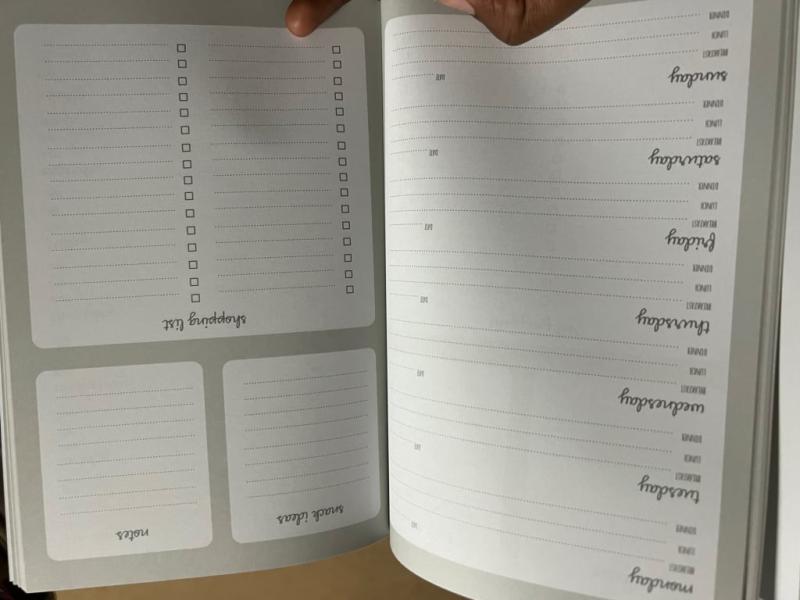 monday DATE
BREAKFAST
LUNCH
DINNER
tuesday DATE
BREAKFAST
LUNCH
DINNER
wednesday DATE
BREAKFAST
LUNCH
DINNER
thursday DATE
BREAKFAST
LUNCH
DINNER
friday DATE
BREAKFAST
LUNCH
DINNER
saturday DATE
BREAKFAST
LUNCH
DINNER
sunday DATE
BREAKFAST
LUNCH
DINNER
snack ideas
notes
shopping list